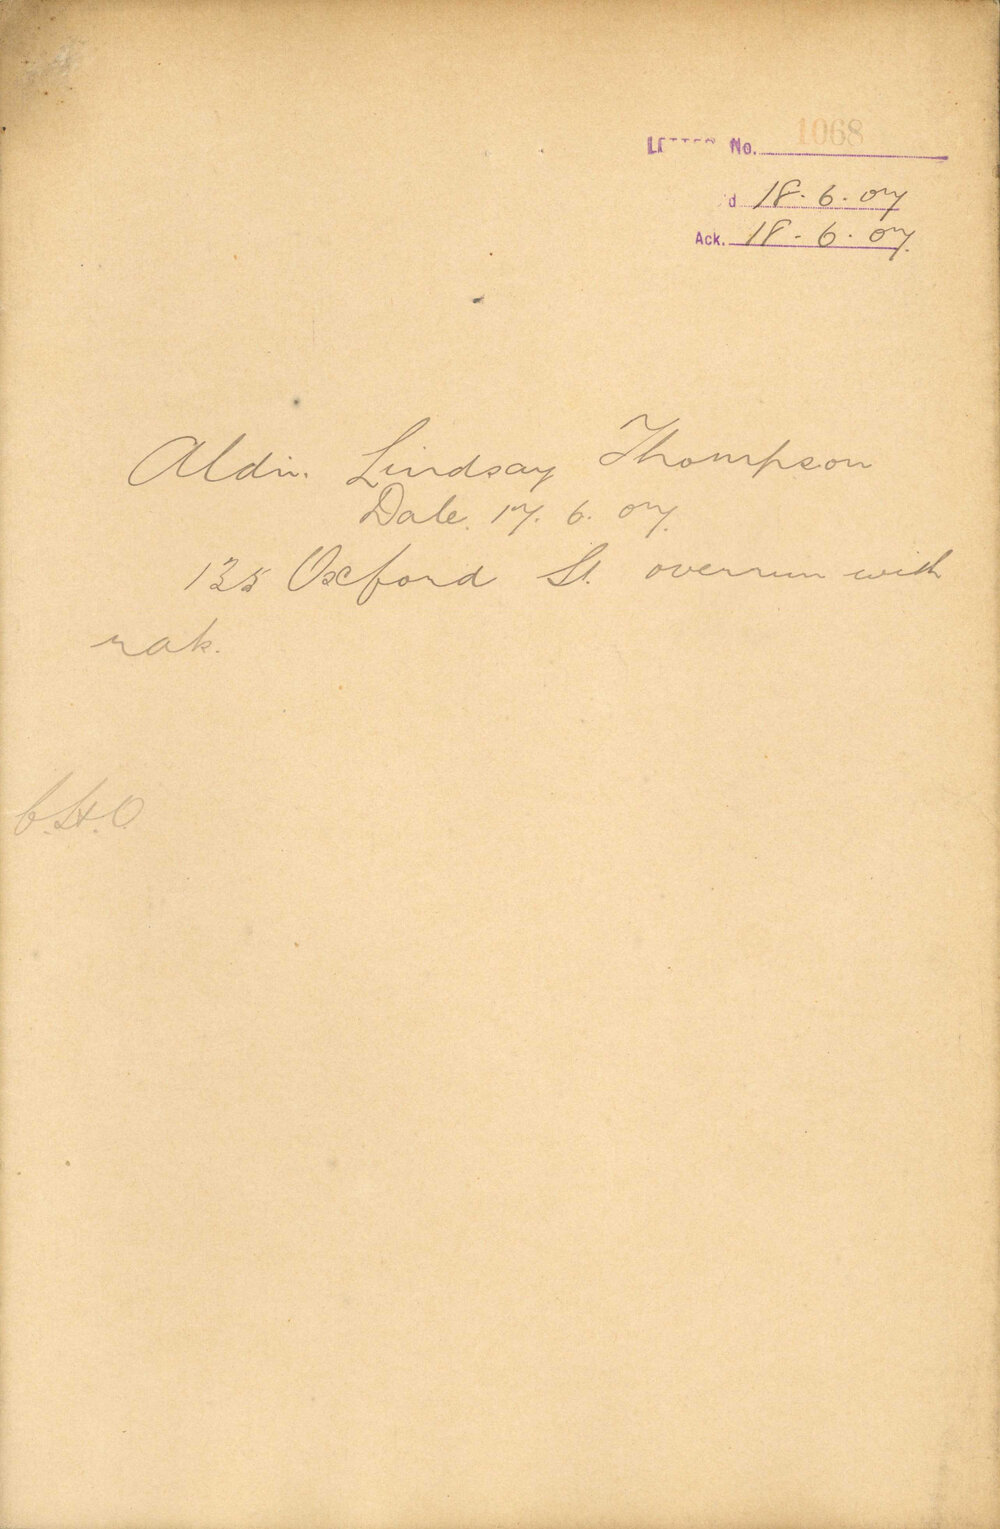 LETTER No. 1068
'd 18.6.07
Ack. 18.6.07.
Aldn. Lindsay Thompson
Date. 17.6.07.
135 Oxford St. overrun with
rats.
C.H.O.